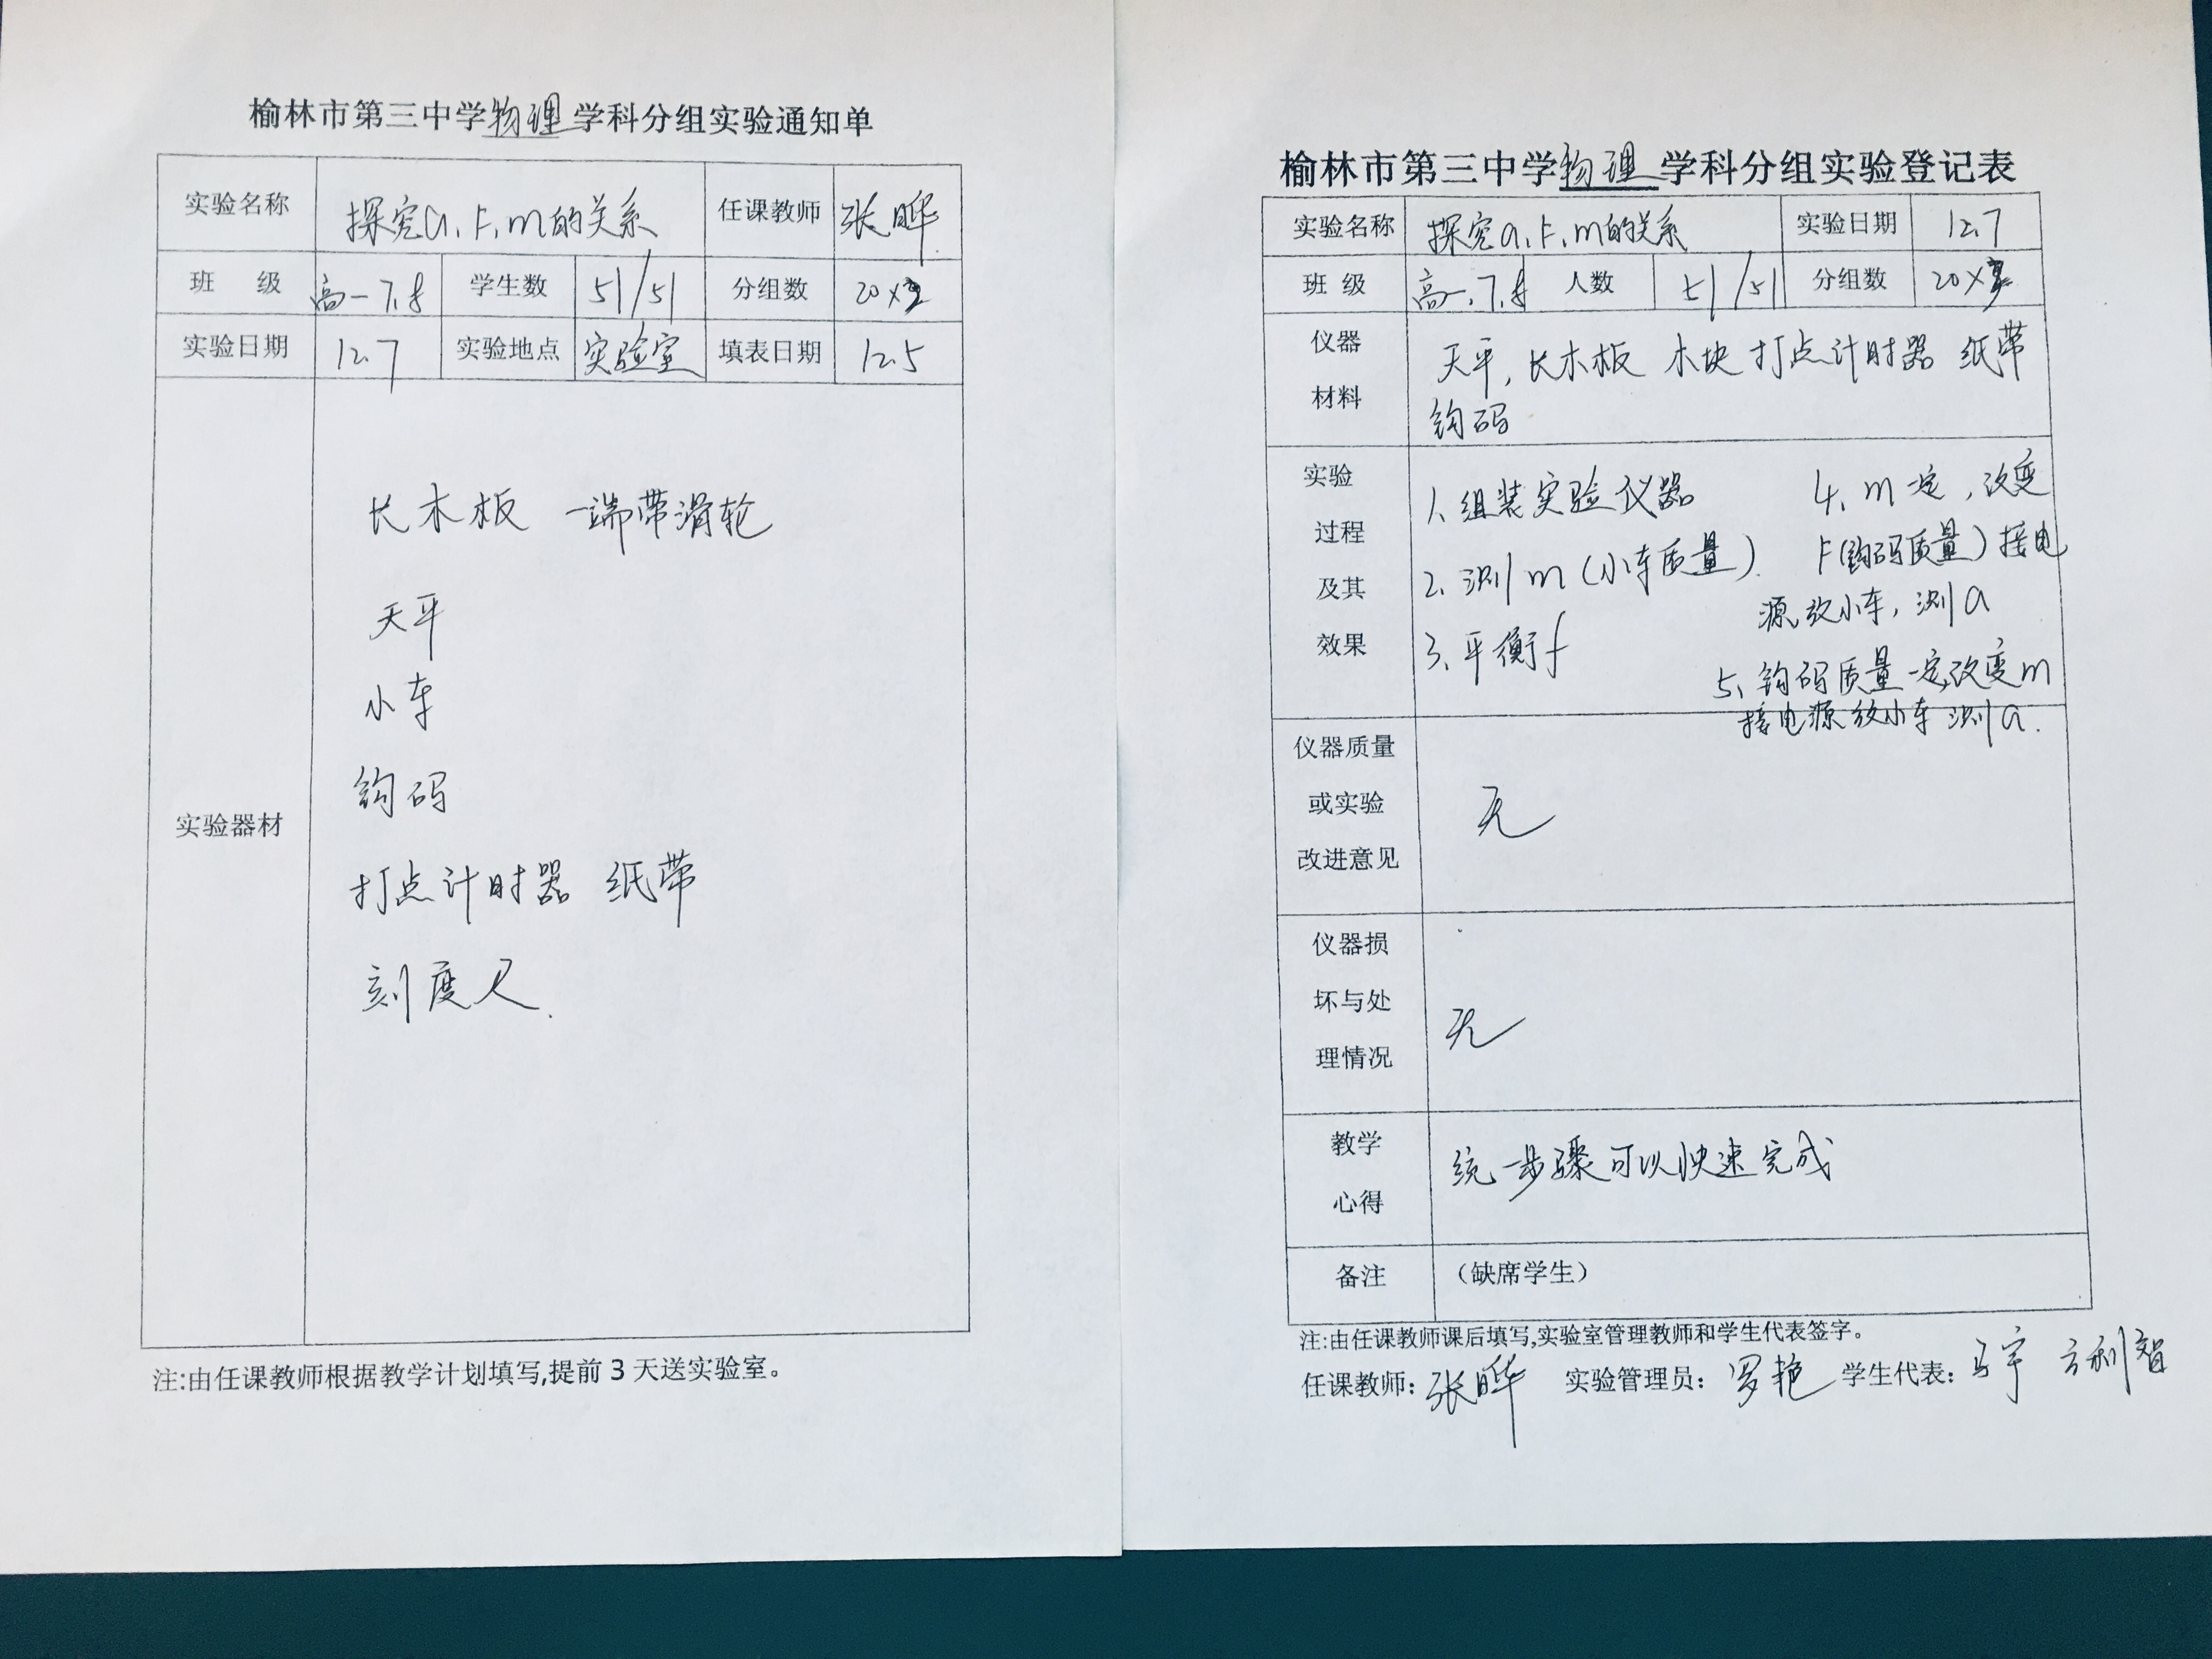 榆林市第三中学物理学科分组实验通知单
实验名称 探究a、F、m的关系 任课教师 张晔
班 级 高一7.8 学生数 51/51 分组数 20×2
实验日期 12.7 实验地点 实验室 填表日期 12.5
实验器材
长木板 一端带滑轮
天平
小车
钩码
打点计时器 纸带
刻度尺.
注:由任课教师根据教学计划填写,提前3天送实验室。
榆林市第三中学物理学科分组实验登记表
实验名称 探究a、F、m的关系 实验日期 12.7
班 级 高一.7.8 人数 51/51 分组数 20×
仪器
材料
天平, 长木板 木块 打点计时器 纸带
钩码
实验
过程
及其
效果
1、组装实验仪器
2、测m(小车质量).
3、平衡f
4、m一定,改变
F(钩码质量)接电
源,放小车,测a
5、钩码质量一定,改变m
接电源放小车测a.
仪器质量
或实验
改进意见
无
仪器损
坏与处
理情况
无
教学
心得
统一步骤可以快速完成
备注 (缺席学生)
注:由任课教师课后填写,实验室管理教师和学生代表签字。
任课教师: 张晔 实验管理员: 罗艳 学生代表: 马宇 方利智